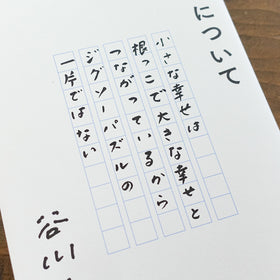 について
小さな幸せは
根っこで大きな幸せと
つながっているから
ジグソーパズルの
一片ではない
谷川